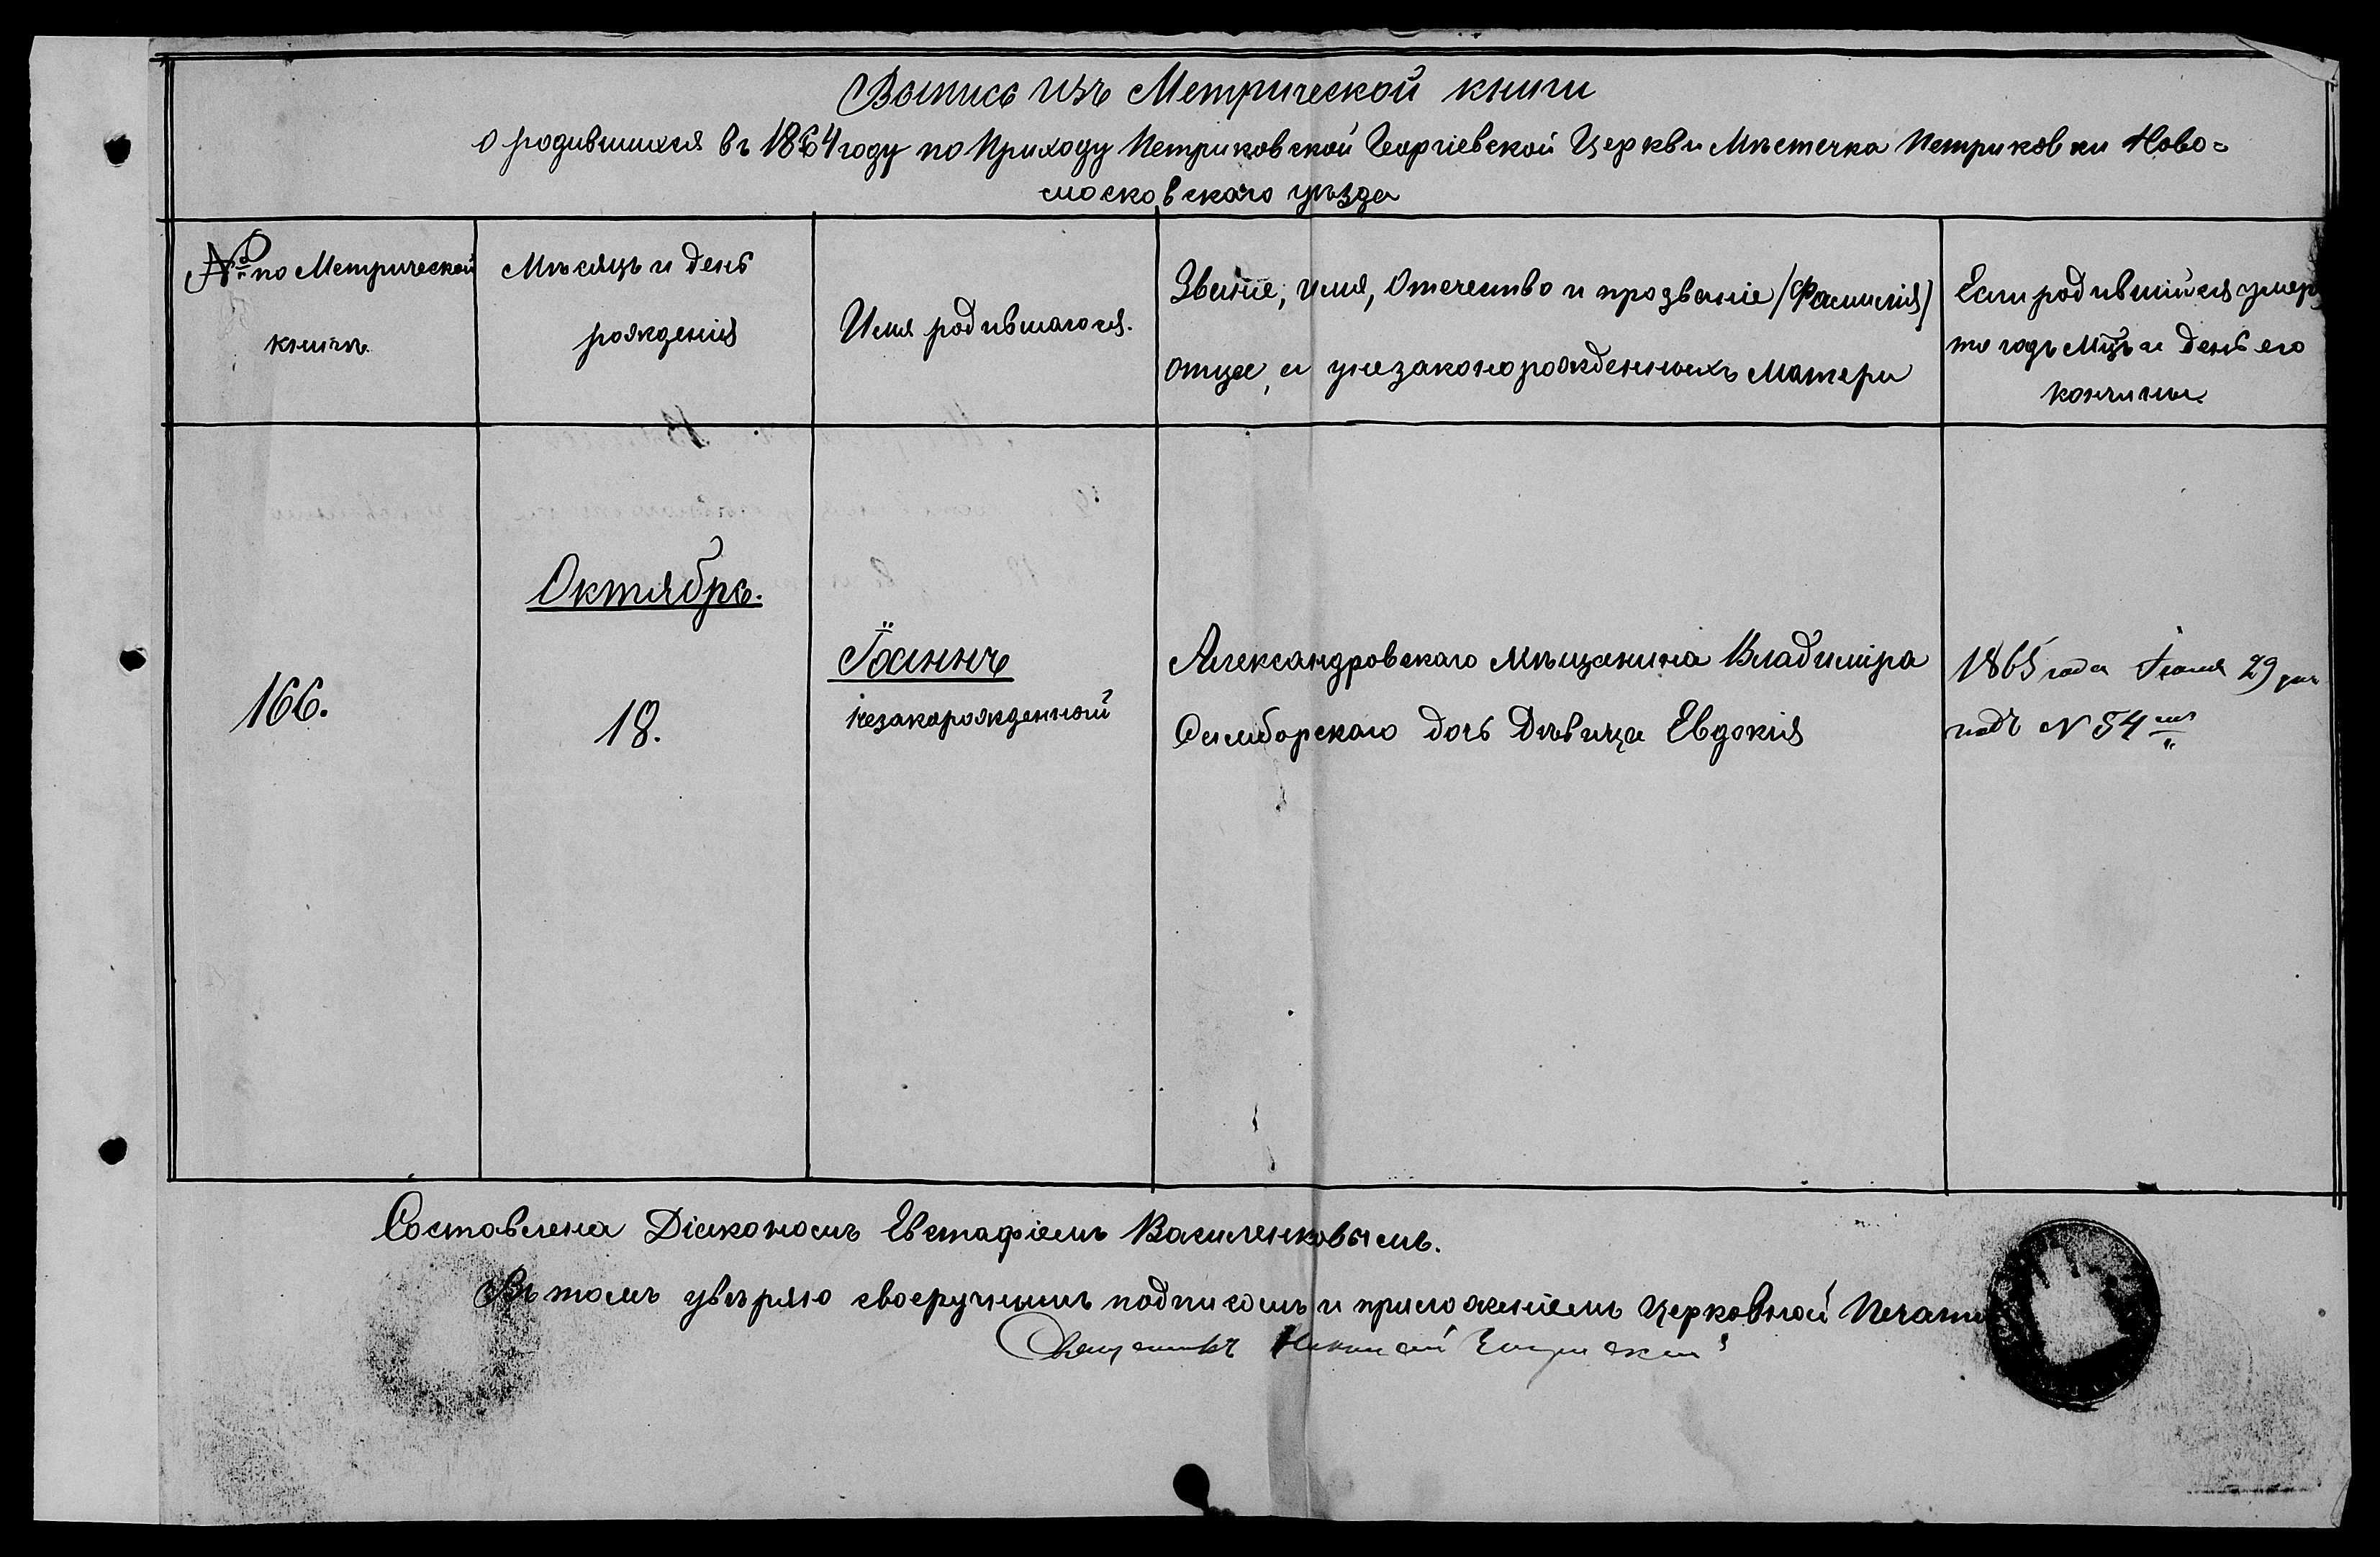 Выпись изъ Метрической книги
о родившихся въ 1864 году по Приходу Петриковской Георгіевской Церкви Мѣстечка Петриковки Ново=
московскаго уѣзда
№ по Метрической
книгѣ
Мѣсяцъ и день
рожденія
Имя родившагося.
Званіе, имя, Отечество и прозваніе /Фамилія/
отца, а унезаконорожденныхъ Матери
Если родившійся умеръ
то годъ Мцъ и день его
кончины.
166.
Октябрь.
18.
Іоаннъ
незакорожденный
Александровскаго мѣщанина Владиміра
дочь Дѣвица Евдокія
1865 года 29 дня
подъ N 54
Составлена Діакономъ Евстафіемъ Василенковымъ.
Въ томъ увѣряю своеручнымъ подписомъ и приложеніемъ Церковной Печати
Священникъ Николай